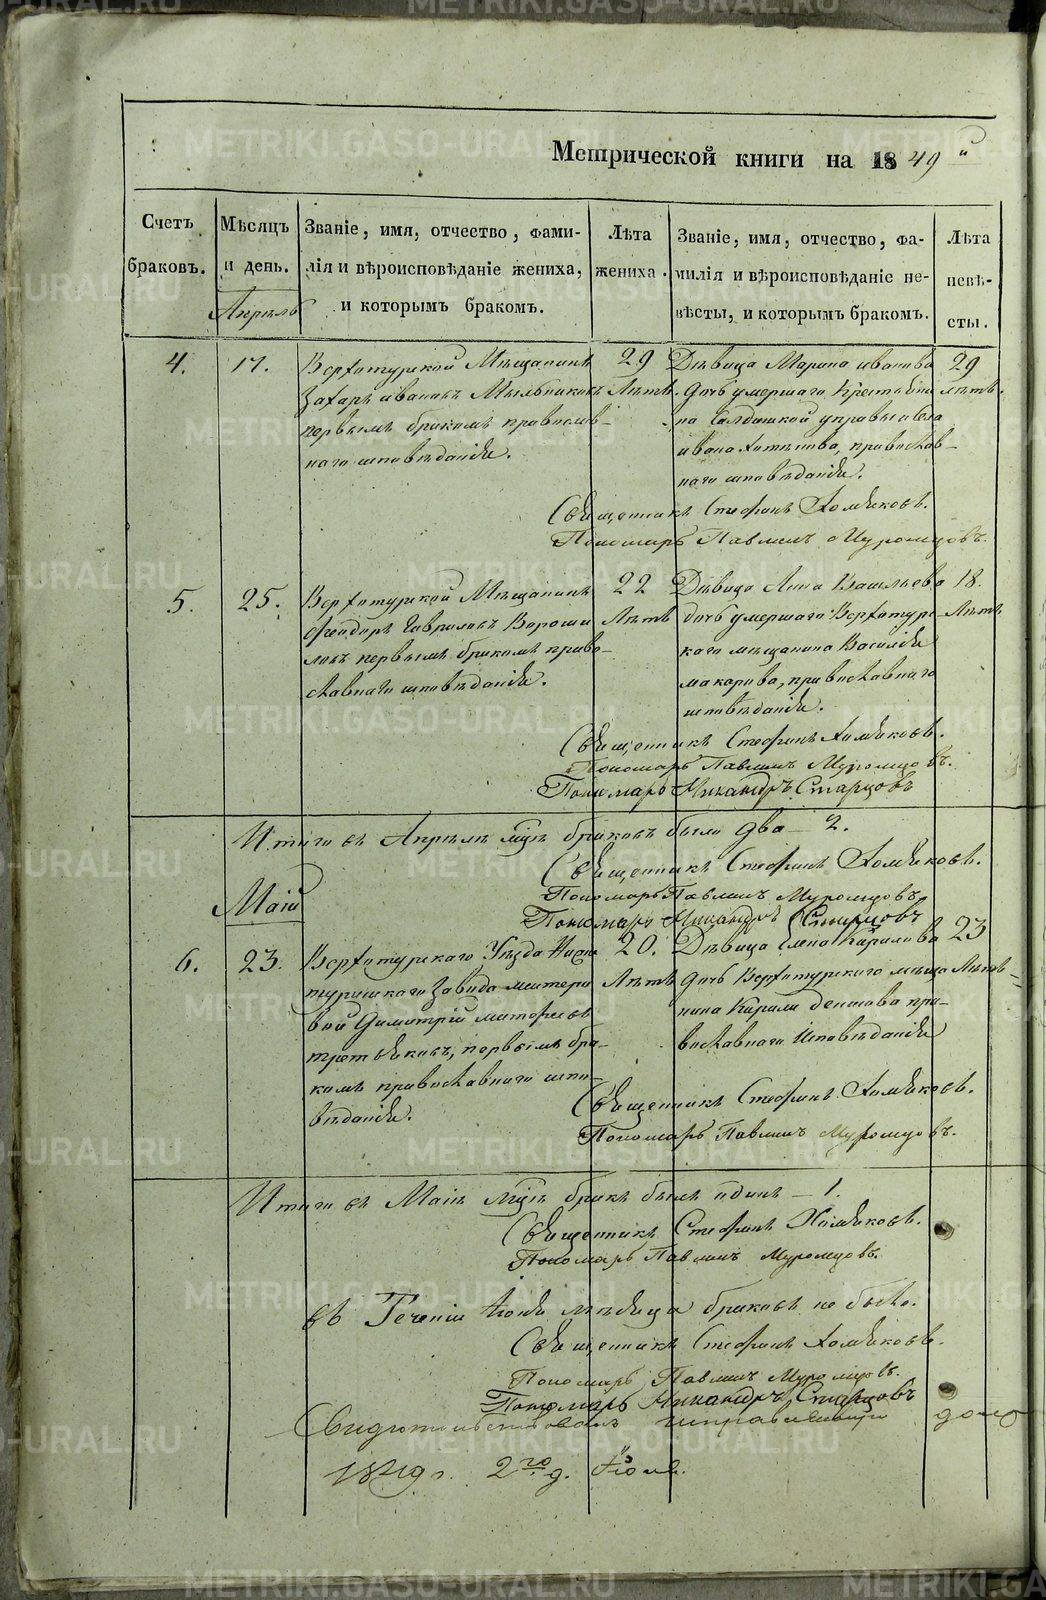 Метрической книги на 1849 й
Счетъ браковъ.
Мѣсяцъ и день.
Званіе, имя, отчество, фами-
лія и вѣроисповѣданіе жениха,
и которымъ бракомъ.
Лѣта жениха.
Званіе, имя, отчество, фа-
милія и вѣроисповѣданіе не-
вѣсты, и которымъ бракомъ.
Лѣта
невѣ-
сты.
Апрѣль
4.
17.
Верхотурской Мѣщанинъ
Захаръ ивановъ Мѣльниковъ
первымъ бракомъ православ-
наго исповѣданія.
29
Лѣтъ.
Дѣвица Марина иванова
дочь умершаго Крестьяни
на управы села
ивана, православ-
наго исповѣданія.
29
лѣтъ.
Священникъ Стефанъ Хомяковъ.
Пономарь Павлинъ Муромцовъ.
5.
25.
Верхотурской Мѣщанинъ
Феодоръ Гавриловъ Вороши
ловъ первымъ бракомъ право-
славнаго исповѣданія.
22
Лѣтъ
Дѣвица Анна Васильева
дочь умершаго Верхотурс-
каго мѣщанина Василія
макарова, православнаго
исповѣданія.
18.
Лѣтъ
Священникъ Стефанъ Хомяковъ.
Пономарь Павлинъ Муромцовъ.
Пономарь Никандръ Старцовъ
Итого въ Апрѣлѣ мцѣ браковъ было два – 2.
Священникъ Стефанъ Хомяковъ.
Пономарь Павлинъ Муромцовъ
Пономарь Никандръ Старцовъ
Маій
6.
23.
Верхотурскаго Уѣзда Нижне
туринскаго Завода мастеро
вой Димитрій
третьяковъ, первымъ бра-
комъ православнаго испо-
вѣданія.
20.
Лѣтъ
Дѣвица Елена Карилова
дочь Верхотурскаго мѣща
нина Карила денисова пра-
вославнаго Исповѣданія
23
Лѣтъ
Священникъ Стефанъ Хомяковъ.
Пономарь Павлинъ Муромцовъ.
Итого въ Маіѣ мцѣ бракъ былъ одинъ – 1.
Священникъ Стефанъ Хомяковъ.
Пономарь Павлинъ Муромцовъ.
въ Теченіи Іюня мѣсяца браковъ не было.
Священникъ Стефанъ Хомяковъ.
Пономарь Павлинъ Муромцовъ.
Пономарь Никандръ Старцовъ
Свидѣтельствовалъ
1849 г. 2го д. Іюля.
METRIKI.GASO-URAL.RU